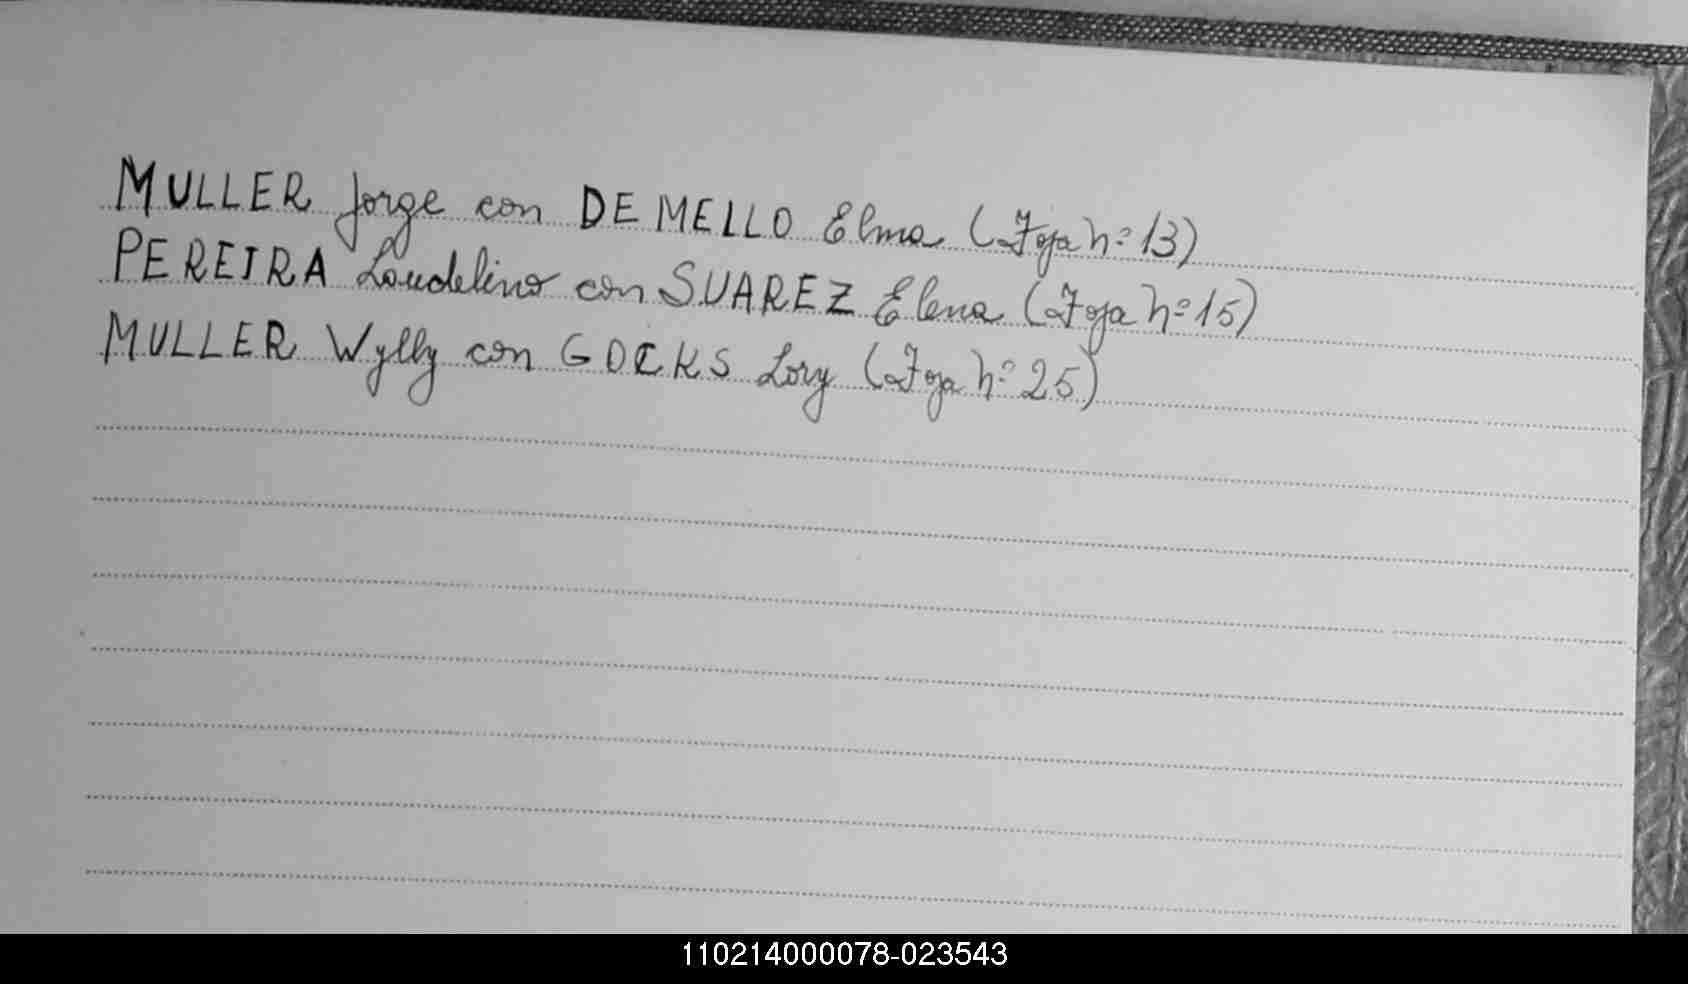 MULLER Jorge con DE MELLO Elma (Foja nº 13)
PEREIRA Laudelino con SUAREZ Elena (Foja nº 15)
MULLER Wylly con GOCKS Lory (Foja nº 25)
110214000078-023543